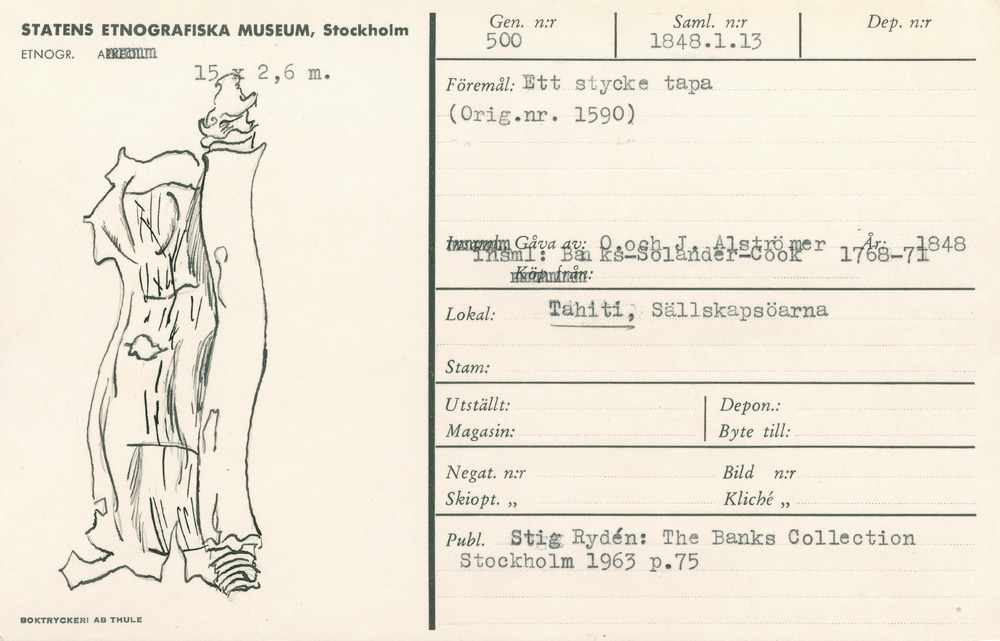 STATENS ETNOGRAFISKA MUSEUM, Stockholm
ETNOGR.
15 x 2,6 m.
Gen. n:r
500
Saml. n:r
1848.1.13
Dep. n:r
Föremål: Ett stycke tapa
(Orig.nr. 1590)
Gåva av: O.och J. Alströmer År: 1848
Insml: Banks-Solander-Cook 1768-71
Köp från:
Lokal: Tahiti, Sällskapsöarna
Stam:
Utställt: Depon.:
Magasin: Byte till:
Negat. n:r Bild n:r
Skiopt. „ Kliché „
Publ. Stig Rydén: The Banks Collection
Stockholm 1963 p.75
BOKTRYCKERI AB THULE